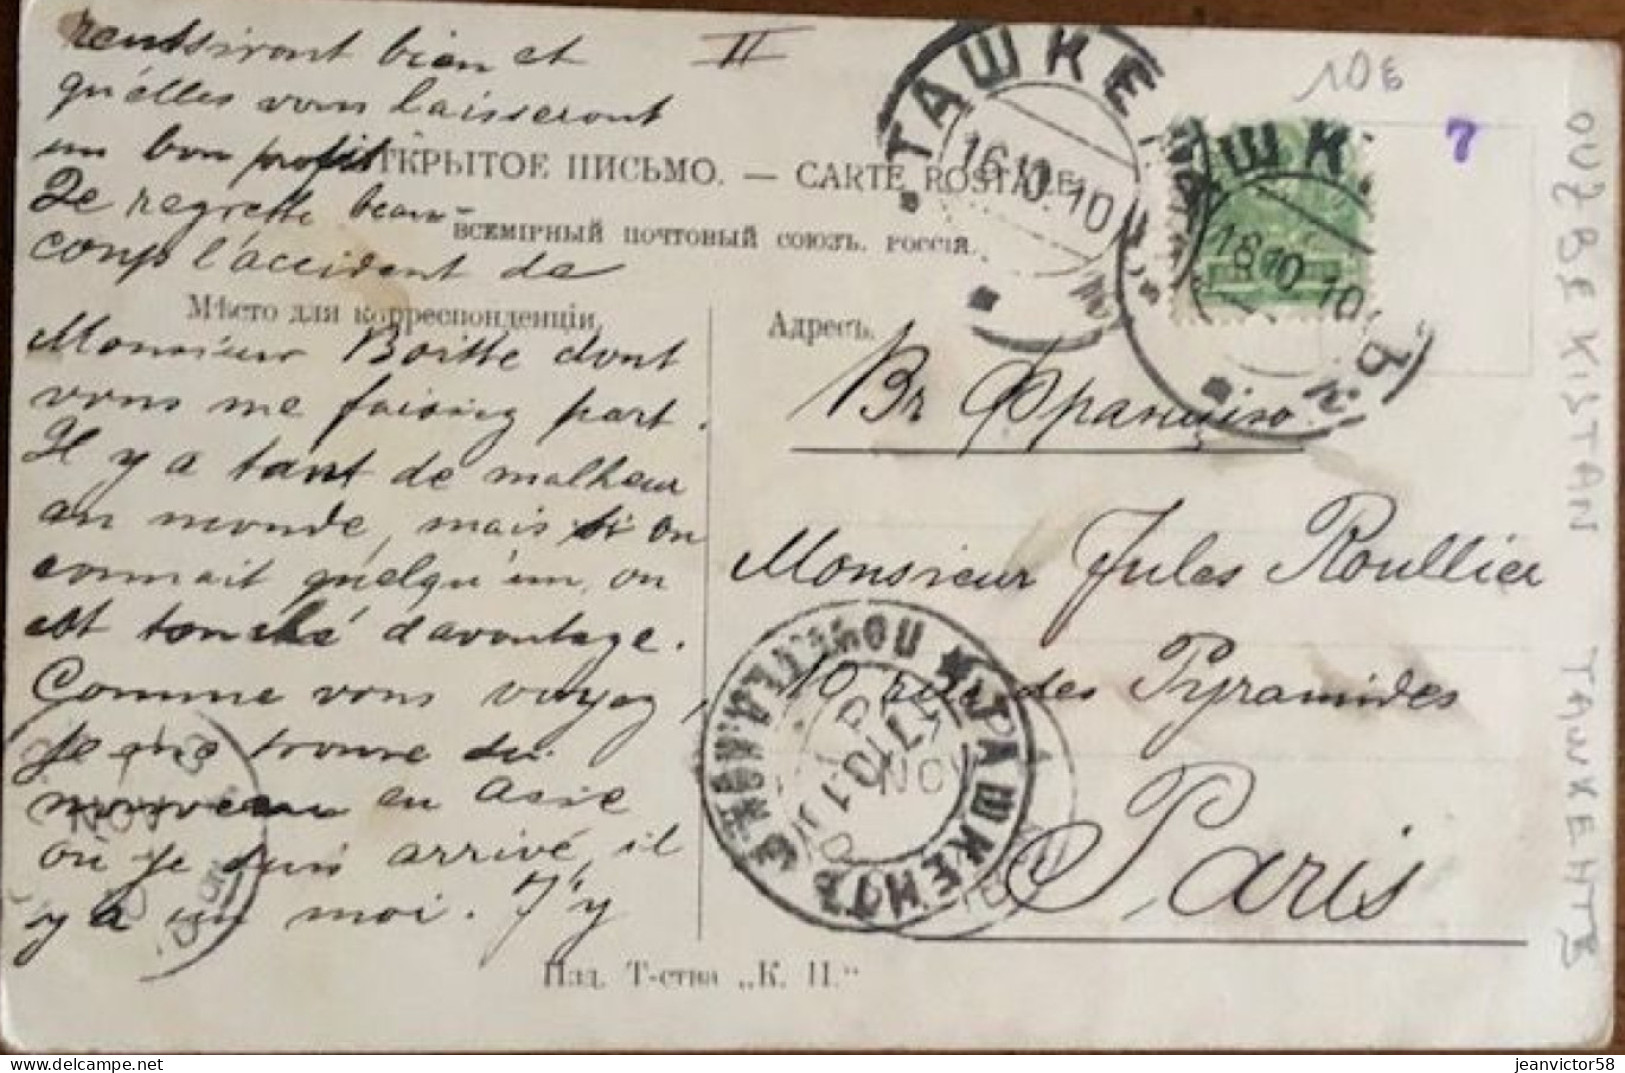 reussiront bien et
qu'elles vous laisseront
un bon profit
Je regrette beau-
coup l'accident de
Monsieur Boitte dont
vous me faising part.
Il y a tant de malheur
au monde, mais si on
connait quelqu'un, on
est touché davantage.
Comme vous voyez,
je me trouve du
nouveau en Asie
où je suis arrivé, il
y a un moi. J'y
II
ОТКРЫТОЕ ПИСЬМО. — CARTE POSTALE.
ВСЕМІРНЫЙ ПОЧТОВЫЙ СОЮЗЪ. РОССІЯ.
Мѣсто для корреспонденціи
Адресъ.
ТАШКЕ
16.10.10
ШК
18.10.10
10 €
7
Вг Францiю
Monsieur Jules Roullier
10 rue des Pyramides
Paris
ТАШКЕНТЪ
NOV
Изд. Т-ства „К. П."
OUZBEKISTAN ТАШКЕНТЪ
jeanvictor58